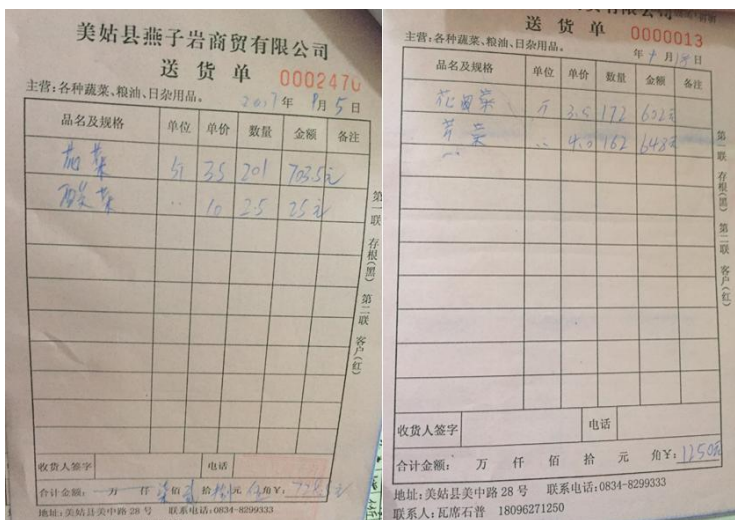 美姑县燕子岩商贸有限公司
送货单
0002470
主营:各种蔬菜、粮油、日杂用品。
2017年9月5日
品名及规格 单位 单价 数量 金额 备注
花菜 斤 3.5 201 703.5元
酸菜 〃 10 2.5 25元
第一联 存根(黑) 第二联 客户(红)
收货人签字 电话
合计金额: 万 仟 柒佰 贰拾 捌元 伍角¥: 728.5元
地址:美姑县美中路28号 联系电话:0834-8299333
送货单
0000013
主营:各种蔬菜、粮油、日杂用品。
年 月 日
品名及规格 单位 单价 数量 金额 备注
斤 3.5 172 602元
芹菜 〃 4.0 162 648元
第一联 存根(黑) 第二联 客户(红)
收货人签字 电话
合计金额: 万 仟 佰 拾 元 角¥: 1250元
地址:美姑县美中路28号 联系电话:0834-8299333
联系人:瓦席石普 18096271250